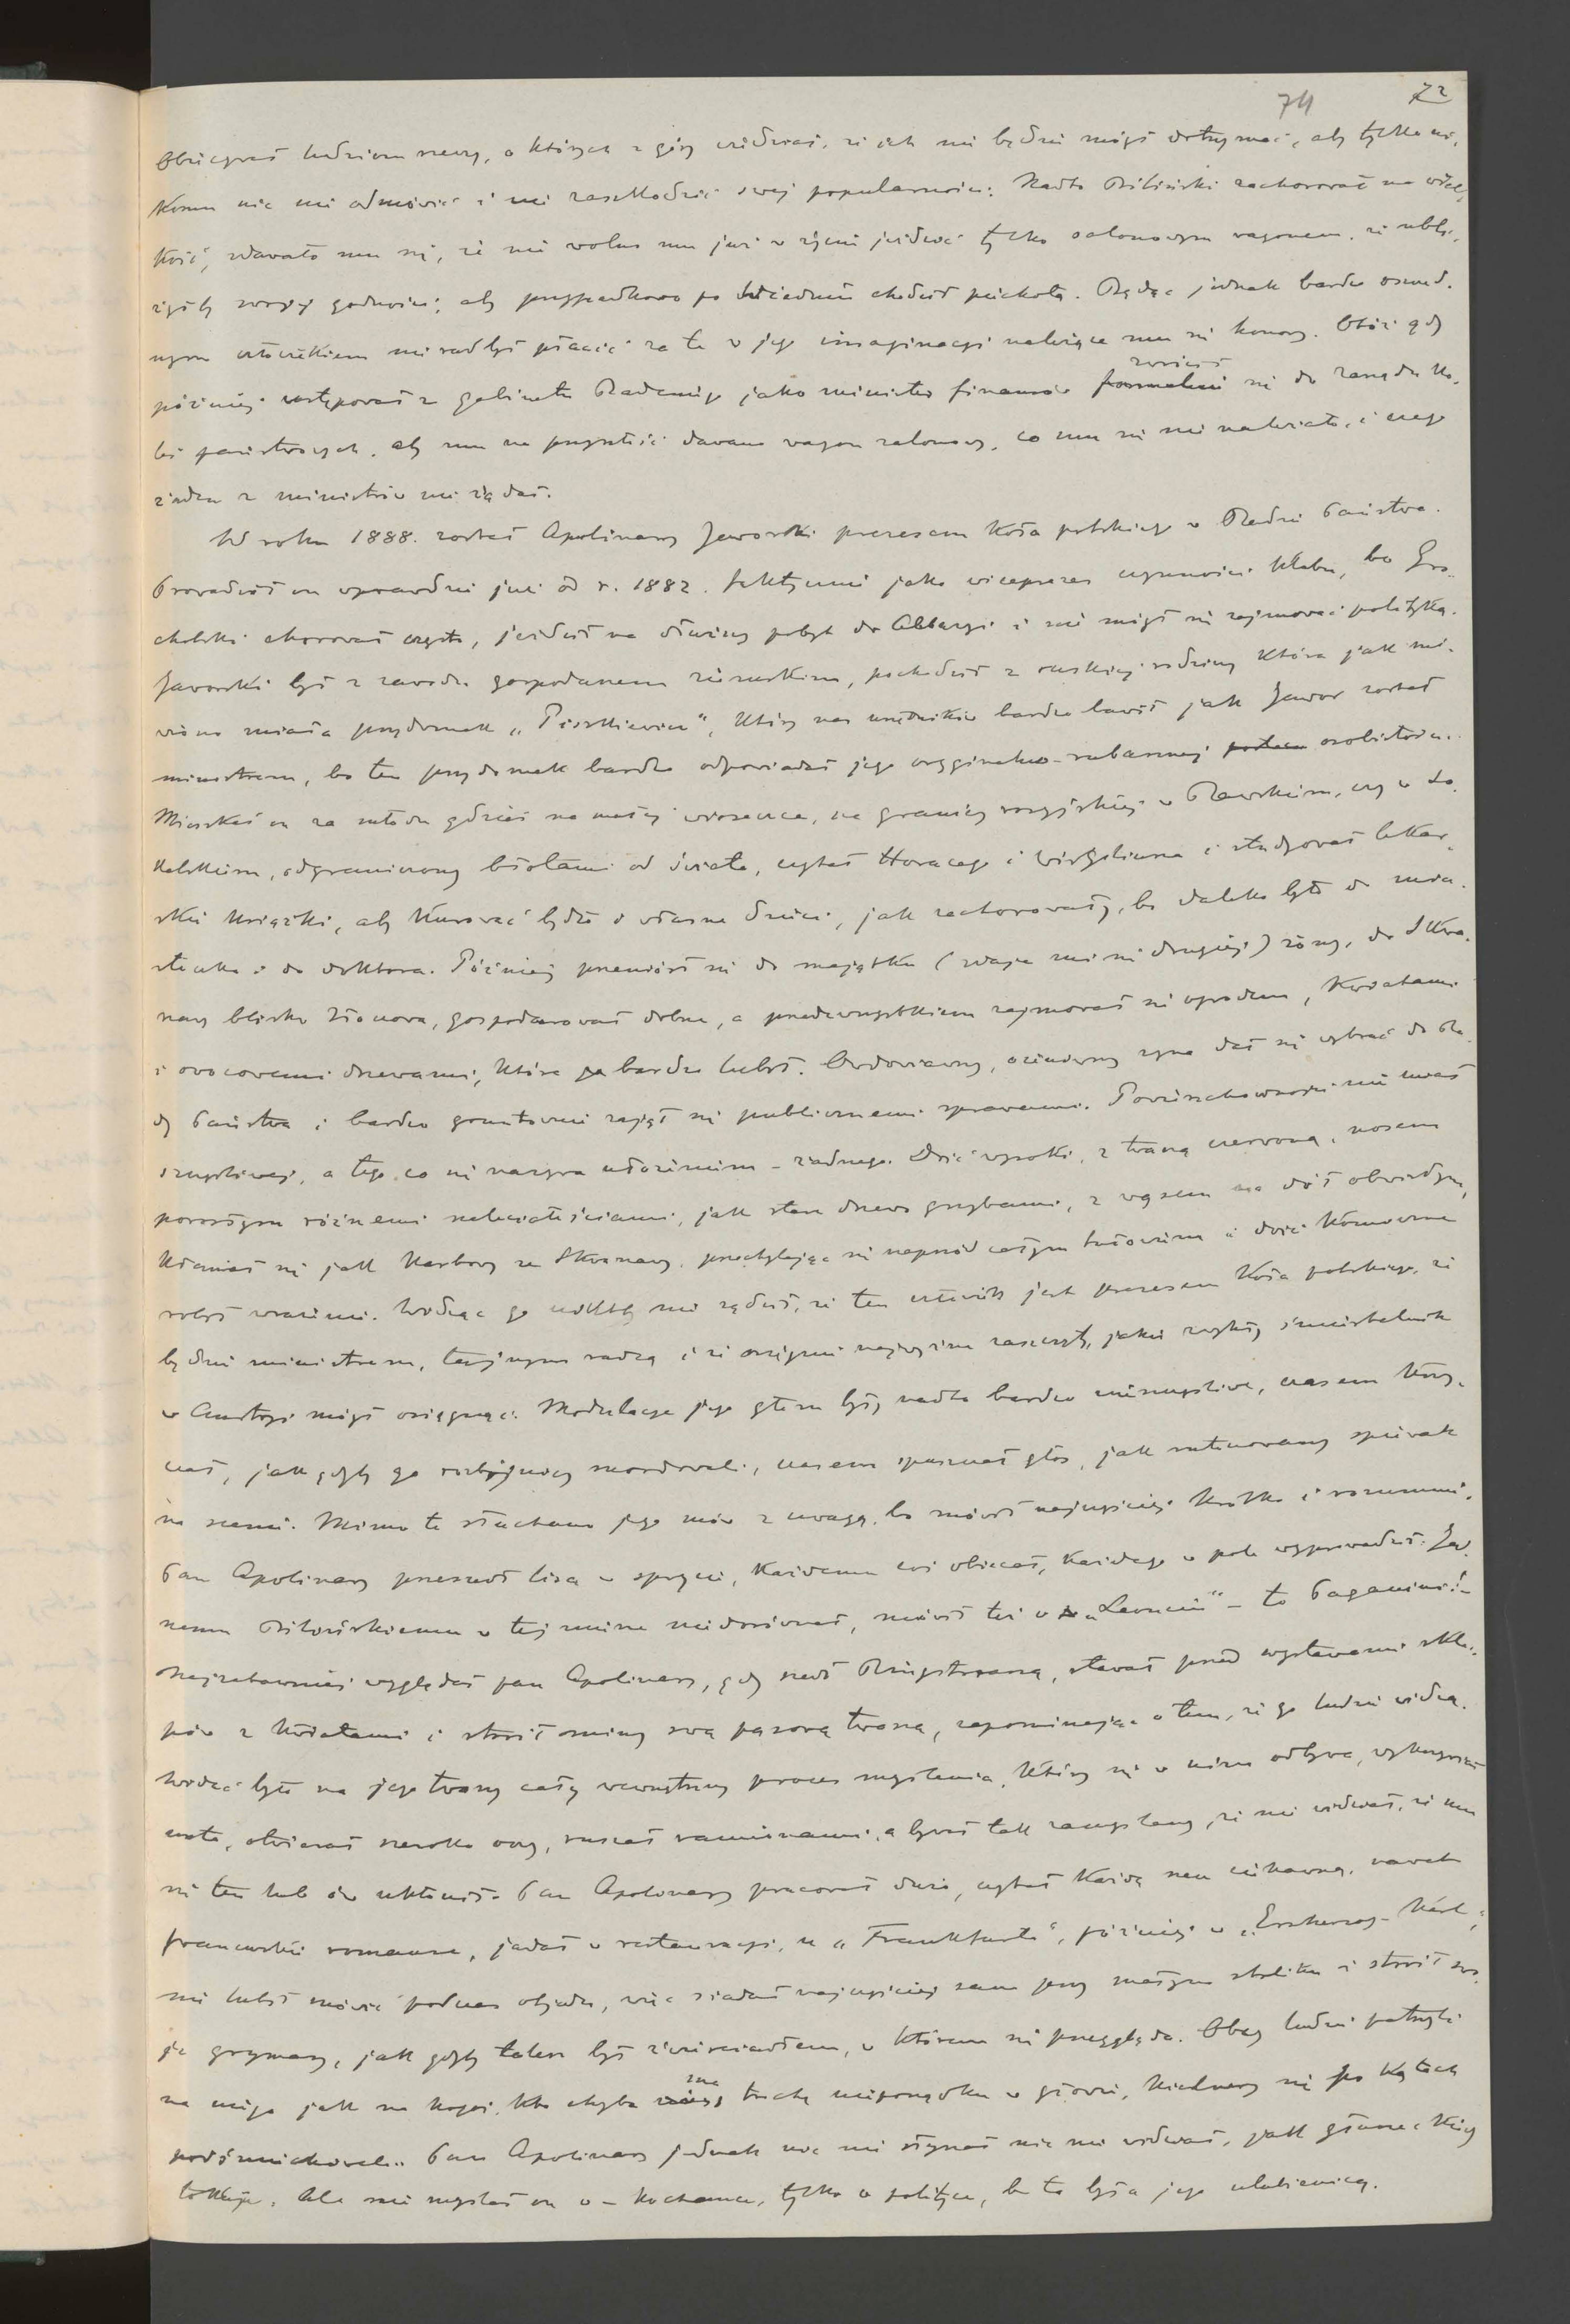 74 72
obiecywał ludziom rzeczy, o których z góry wiedział, że ich nie będzie mógł dotrzymać, aby tylko ni-
komu nic nie odmówić i nie zaszkodzić swej popularności. Nadto Biliński zachorował na wiel-
kość, zdawało mu się, że nie wolno mu już w życiu jeździć tylko salonowym wagonem, że ubli-
żyłby swojej godności, aby przypadkowo po Wiedniu chodził piechotą. Będąc jednak bardzo oszczęd-
nym człowiekiem nie rad był płacić za te w jego imaginacyi należące mu się honory. Otóż gdy
później ustępował z gabinetu Badeniego jako minister finansów zwrócił się do zarządu ko-
lei państwowych, aby mu na przyszłość dawano wagon salonowy, co mu się nie należało, i czego
żaden z ministrów nie żądał.
W roku 1888. został Apolinary Jaworski prezesem Koła polskiego w Radzie Państwa.
Prowadził on wprawdzie już od r. 1882. faktycznie jako wiceprezes czynności klubu, bo Gro-
cholski chorował często, jeździł na dłuższy pobyt do Abbazyi i nie mógł się zajmować polityką.
Jaworski był z zawodu gospodarzem ziemskim, pochodził z ruskiej rodziny która jak mó-
wiono miała przydomek „Pieskiewicz", który nas urzędników bardzo bawił jak Jawor został
ministrem, bo ten przydomek bardzo odpowiadał jego oryginalno-rubasznej osobistości.
Mieszkał on za młodu gdzieś na małej wioseczce, na granicy rosyjskiej w Rawskiem, czy w So-
kalskiem, odgraniczony błotami od świata, czytał Horacego i Wirgiliusza i studyował lekar-
skie książki, aby kurować bydło i własne dzieci, jak zachorowały, bo daleko było do mia-
steczka i do doktora. Później przeniósł się do majątku (zdaje mi się drugiej) żony, do Skwa-
rzawy blisko Złoczowa, gospodarował dobrze, a przedewszystkiem zajmował się ogrodem, kwiatami
i owocowemi drzewami, które bardzo lubił. Owdowiawszy, ożeniwszy syna dał się wybrać do Ra-
dy Państwa i bardzo gruntownie zajął się publicznemi sprawami. Powierzchowności nie miał
szczęśliwej, a tego co się nazywa ułożeniem – żadnego. Dość wysoki, z twarzą czerwoną, nosem
porosłym różnemi naleciałościami, jak stare drzewo grzybami, z wąsem na dół obwisłym,
kłaniał się jak karbowy ze Skwarzawy, przechylając się naprzód całym tułowiem i dość komiczne
robił wrażenie. Widząc go niktby nie sądził, że ten człowiek jest prezesem Koła polskiego, że
będzie ministrem, tajnym radcą i że osiągnie najwyższe zaszczyty, jakie zwykły śmiertelnik
w Austryi mógł osiągnąć. Modulacye jego głosu były nadto bardzo nieszczęśliwe, czasem krzy-
czał, jak gdyby go rozbójnicy mordowali, czasem spuszczał głos, jak rutynowany śpiewak
na scenie. Mimo to słuchano jego mów z uwagą, bo mówił najczęściej krótko i rozumnie.
Pan Apolinary przeszedł lisa w sprycie, każdemu coś obiecał, każdego w pole wyprowadził. Jed-
nemu Bilińskiemu w tej mierze nie dorównał, mówił też o „Leonciu" – to Paganini! –
Najzabawniej wyglądał pan Apolinary, gdy szedł Ringstrassą, stawał przed wystawami skle-
pów z kwiatami i stroił miny swą pąsową twarzą, zapominając o tem, że go ludzie widzą.
Widać było na jego twarzy cały wewnętrzny proces myślenia, który się w nim odbywa, wykrzywiał
usta, otwierał szeroko oczy, ruszał ramionami, a bywał tak zamyślony, że nie widział, że mu
się ten lub ów ukłonił. Pan Apolinary pracował dużo, czytał każdą rzecz ciekawą, nawet
francuskie romanse, jadał w restauracyi, u „Frankfurta", później w „Erzherzog-Karl",
nie lubił mówić podczas objadu, więc siadał najczęściej sam przy małym stoliku i stroił swo-
je grymasy, jak gdyby talerz był zwierciadłem, w którem się przegląda. Obcy ludzie patrzyli
na niego jak na kogoś, kto chyba ma trochę nieporządku w głowie, kielnerzy się po kątach
podśmiechiwali. Pan Apolinary jednak nic nie słyszał nic nie widział, jak głuszec kiedy
tokuje. Ale nie myślał on o – kochance, tylko o polityce, bo ta była jego ulubienicą.